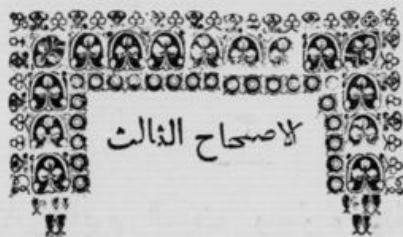 الاصحاح الثالث